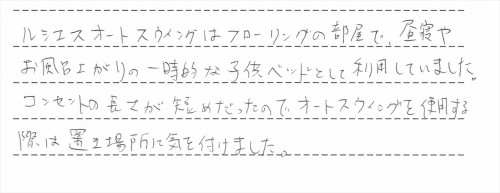 ルシエスオートスウイングはフローリングの部屋で、昼寝や
お風呂上がりの一時的な子供ベッドとして利用していました。
コンセントの長さが短めだったので、オートスウィングを使用する
際は置き場所に気を付けました。